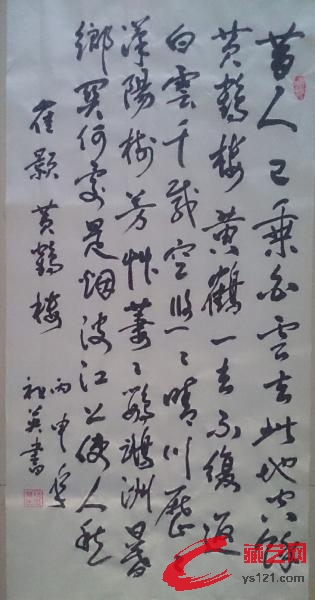 昔人已乘白雲去此地空餘
黄鶴楼黄鶴一去不復返
白雲千載空悠々晴川歷々
漢陽樹芳艸萋々鸚鵡洲日暮
鄉関何處是烟波江上使人愁
崔颢黄鶴楼
丙申年
英書
藏艺网
ys121.com